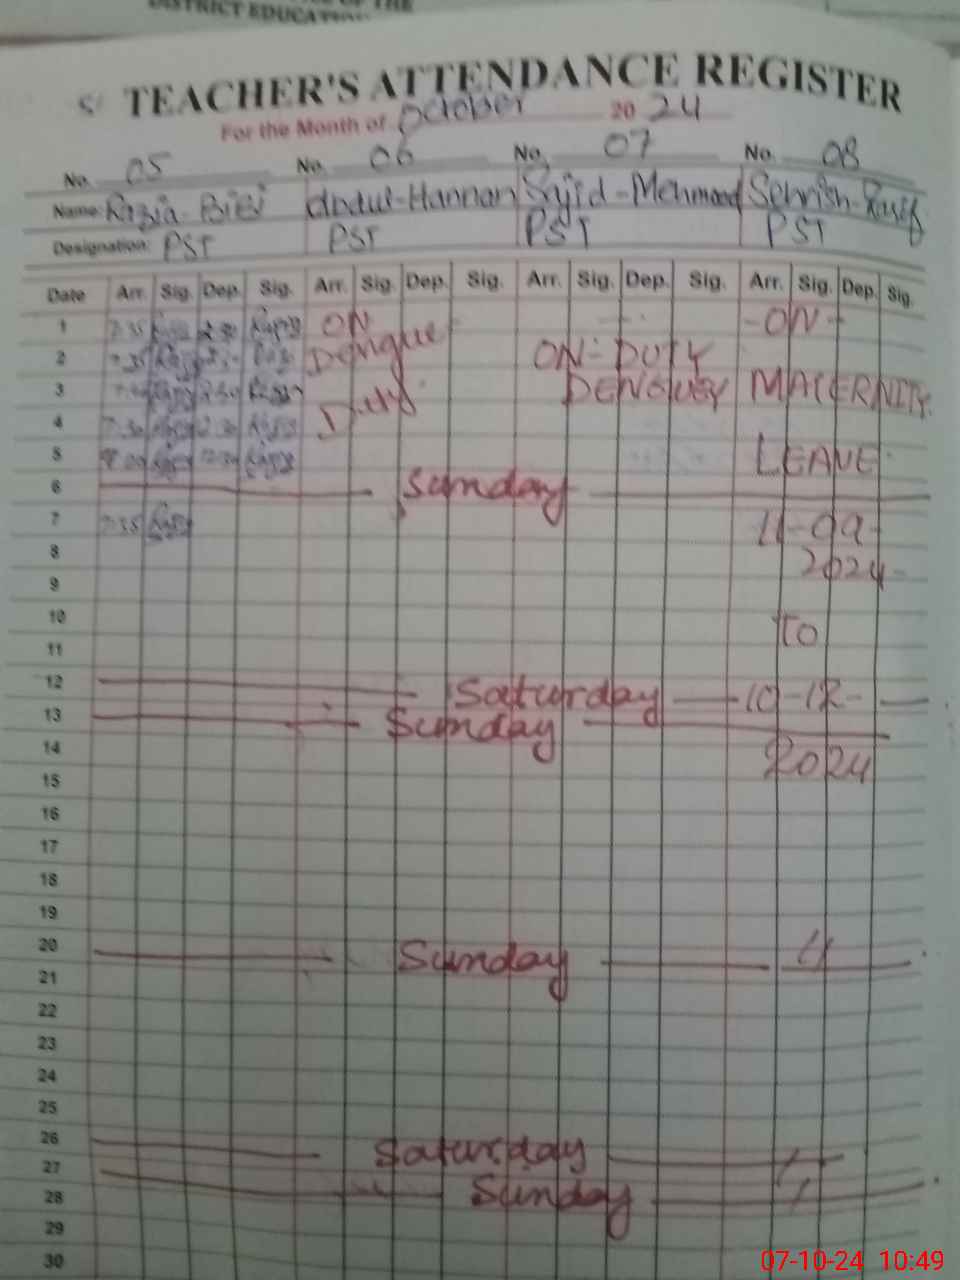 DISTRICT EDUCATION
TEACHER'S ATTENDANCE REGISTER
For the Month of October 2024
No. 05 No. 06 No. 07 No. 08
Name: Razia-BiBi Abdul-Hannan Sajid-Mehmood Sehrish-Kasif
Designation: PST PST PST PST
Date Arr. Sig. Dep. Sig. Arr. Sig. Dep. Sig. Arr. Sig. Dep. Sig. Arr. Sig. Dep. Sig.
1 7:35 ON -ON-
2 7:35 Dengue ON-DUTY
3 DENGUEY MATERNITY
4 7:30 Duty
5 8:00 LEAVE
6 Sunday
7 7:35 11-09-
8 2024-
9
10 TO
11
12 Saturday 10-12-
13 Sunday
14 2024
15
16
17
18
19
20 Sunday
21
22
23
24
25
26 Saturday
27 Sunday
28
29
30
07-10-24 10:49